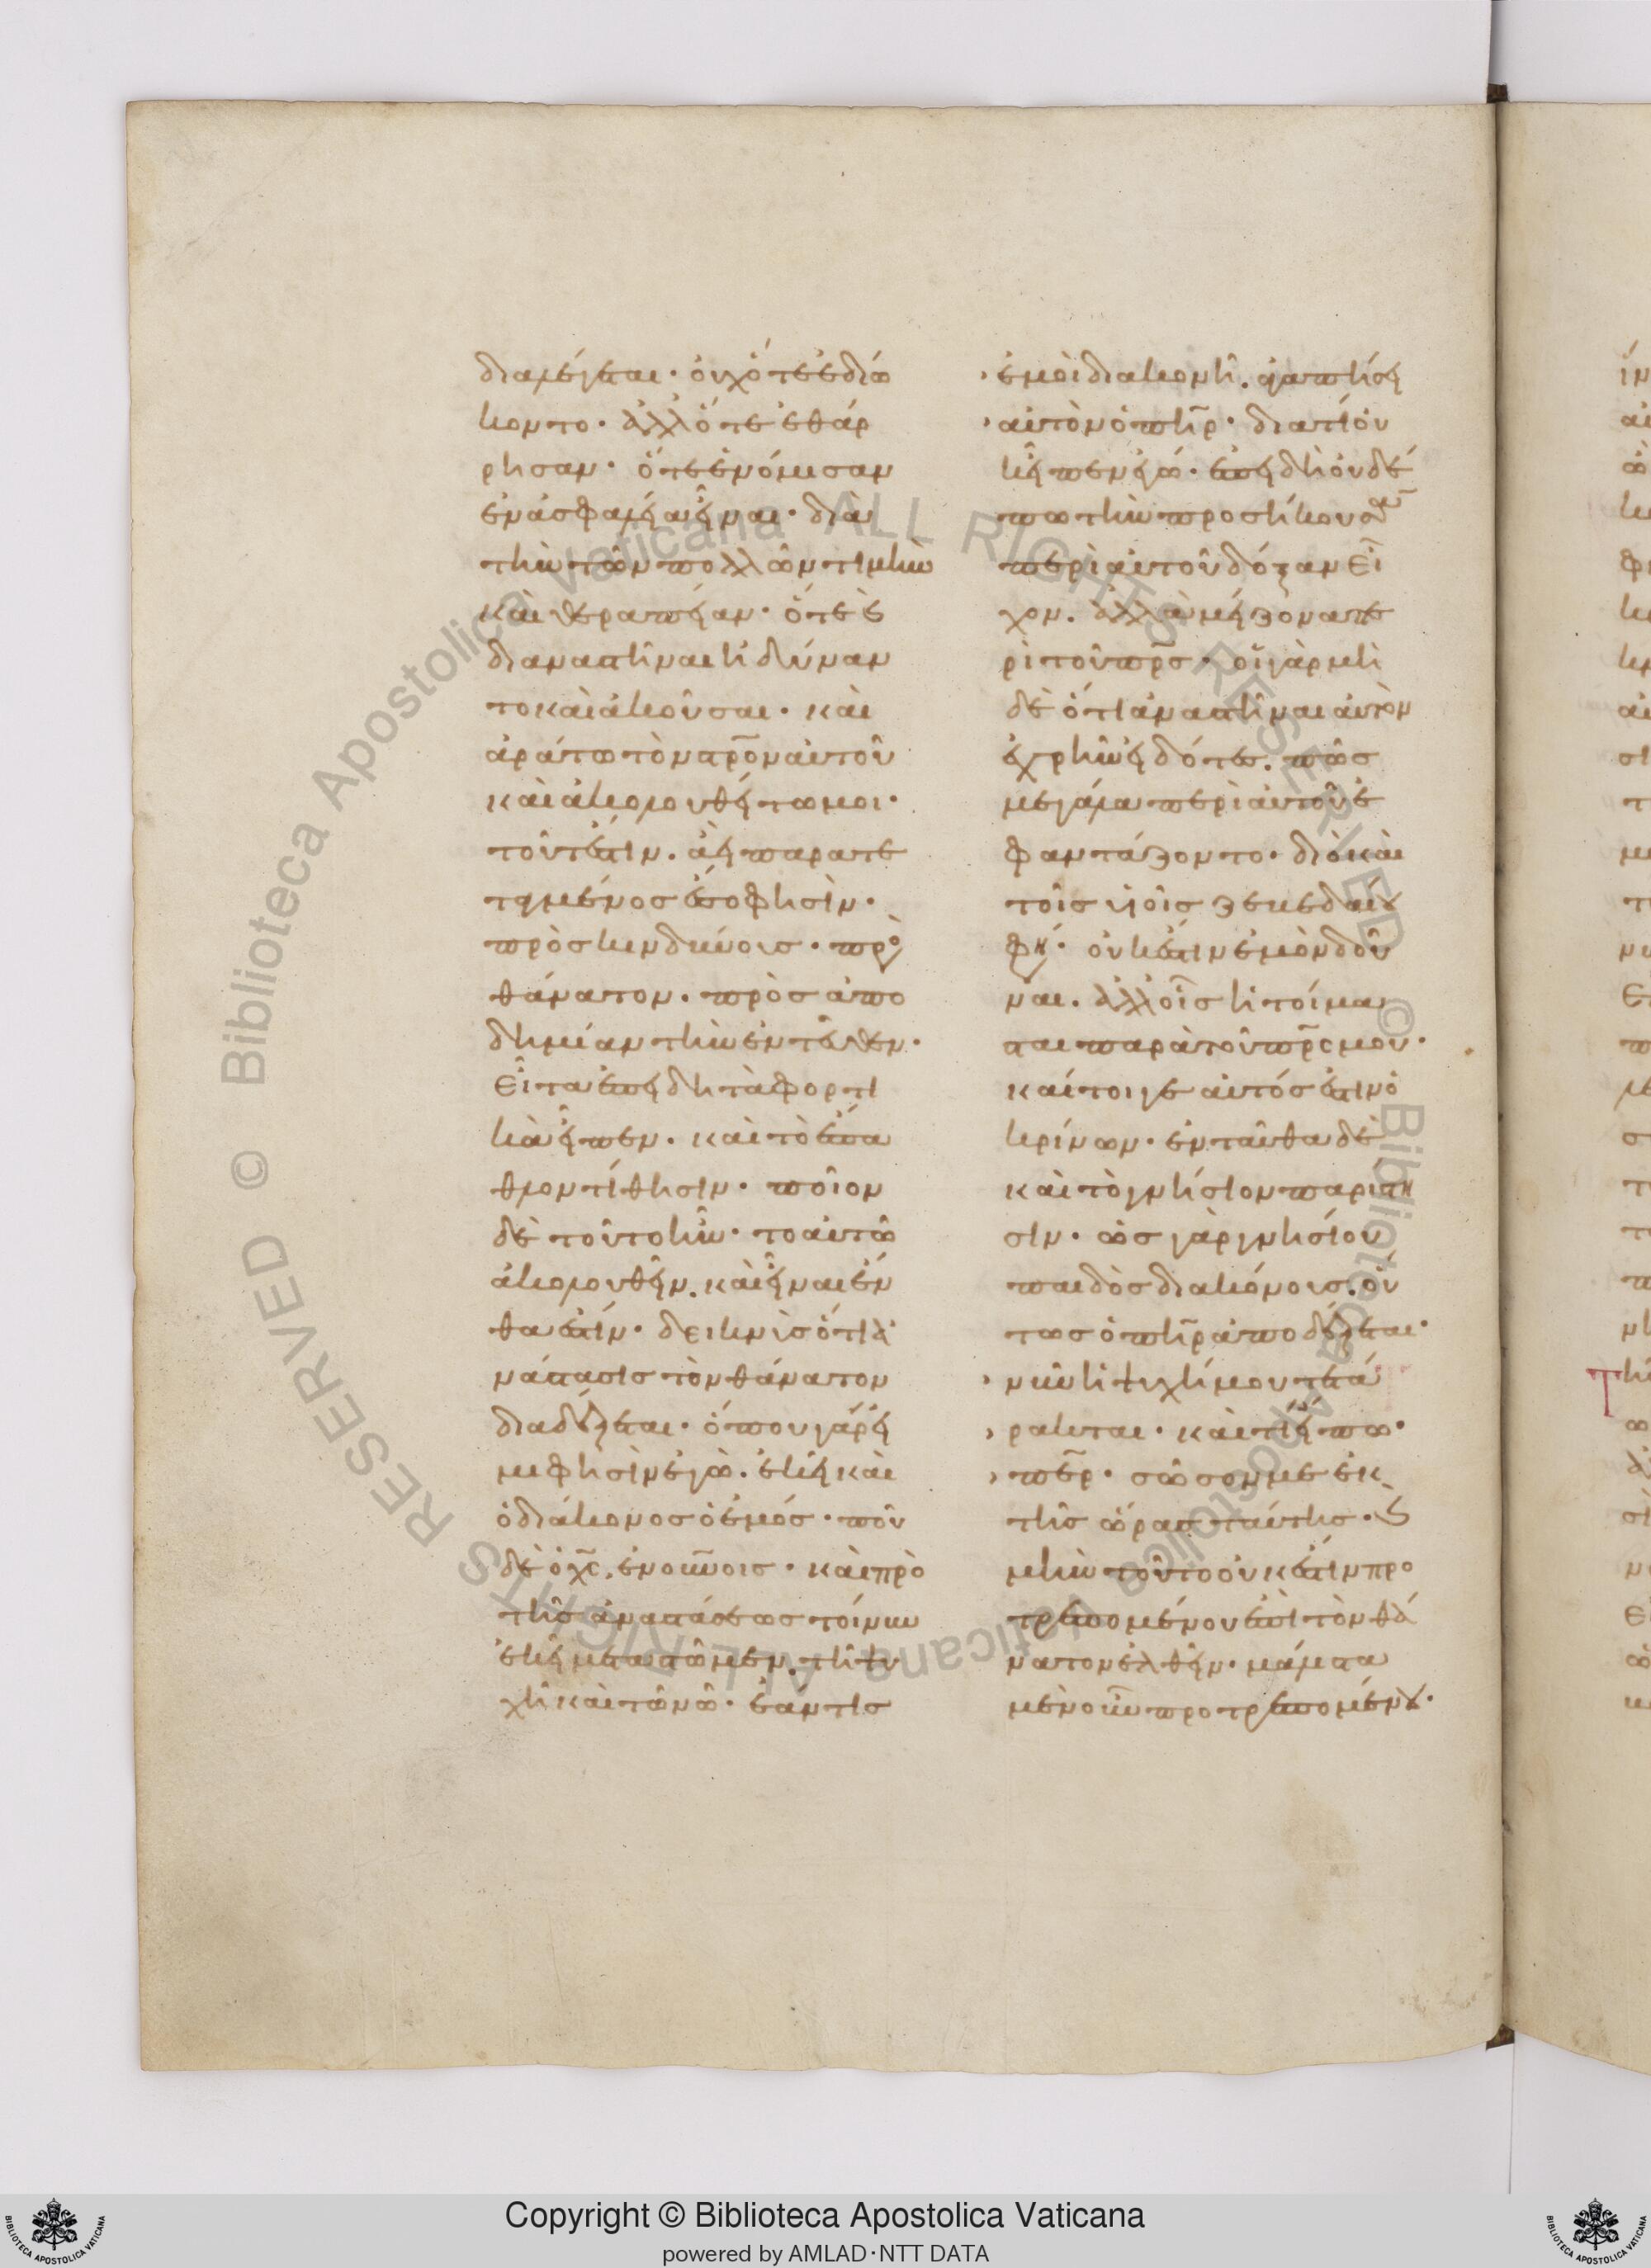 διαλέγεται· οὐχ ὅτε ἐδιώ
κοντο· ἀλλ' ὅτε ἐθάρ
ρησαν· ὅτε ἐνόμισαν
ἐν ἀσφαλείᾳ εἶναι· διὰ
τὴν τῶν πολλῶν τιμὴν
καὶ θεραπείαν· ὅτε
διαναστῆναι ἠδύναν
το καὶ ἀκοῦσαι· καὶ
ἀράτω τὸν σταυρὸν αὐτοῦ
καὶ ἀκολουθείτω μοι·
τουτέστιν· ἀεὶ παρατε
ταγμένος ἔστω φησὶν·
πρὸς κινδύνους· πρὸς
θάνατον· πρὸς ἀπο
δημίαν τὴν ἐντεῦθεν·
εἶτα ἐπειδὴ τὰ φορτι
κὰ εἶπεν· καὶ τὸ ἔπα
θλον τίθησιν· ποῖον
δὲ τοῦτο ἦν· τὸ αὐτῶ
ἀκολουθεῖν· καὶ εἶναι ἔν
θα ἐστίν· δεικνὺς ὅτι ἀ
νάστασις τὸν θάνατον
διαδέξεται· ὅπου γάρ εἰ
μι φησὶν ἐγὼ· ἐκεῖ καὶ
ὁ διάκονος ὁ ἐμός· ποῦ
δὲ ὁ χς· ἐν οὐνοις· καὶ πρὸ
τῆς ἀναστάσεως τοίνυν
ἐκεῖ μεταστῶμεν· τῆ ψυ
χῆ καὶ τῶ νῶ· ἐάν τις
ἐμοὶ διακονῆ· ἀγαπήσει
αὐτὸν ὁ πηρ· διατί οὐ
κ εἶπεν ἐγώ· ἐπειδὴ οὐδέ
πω τὴν προσήκουσαν
περὶ αὐτοῦ δόξαν εἶ
χον· ἀλλὰ μείζονα πε
ρὶ τοῦ πρς· οἱ γὰρ μὴ
δὲ ὅτι ἀναστῆναι αὐτὸν
ἐχρῆν εἰδότες· πῶς
μεγάλα περὶ αὐτοῦ ἐ
φαντάζοντο· διὸ καὶ
τοῖς υἱοῖς ζεβεδαίου
φη· οὐκ ἔστιν ἐμὸν δοῦ
ναι· ἀλλ' οἷς ἡτοίμα
σται παρὰ τοῦ πρς μου·
καίτοιγε αὐτός ἐστιν ὁ
κρίνων· ἐνταῦθα δὲ
καὶ τὸ γνήσιον παρίστη
σιν· ὡς γὰρ γνησίου
παιδὸς διακόνους· οὕ
τως ὁ πηρ ἀποδέξεται·
νῦν ἡ ψυχή μου τετά
ρακται· καὶ τί εἴπω·
περ· σῶσόν με ἐκ
τῆς ὥρας ταύτης·
μὴν τοῦτο οὐκ ἔστιν προ
τρεπομένου ἐπὶ τὸν θά
νατον ἐλθεῖν· μάλιστα
μὲν οὖν προτρεπομένου·